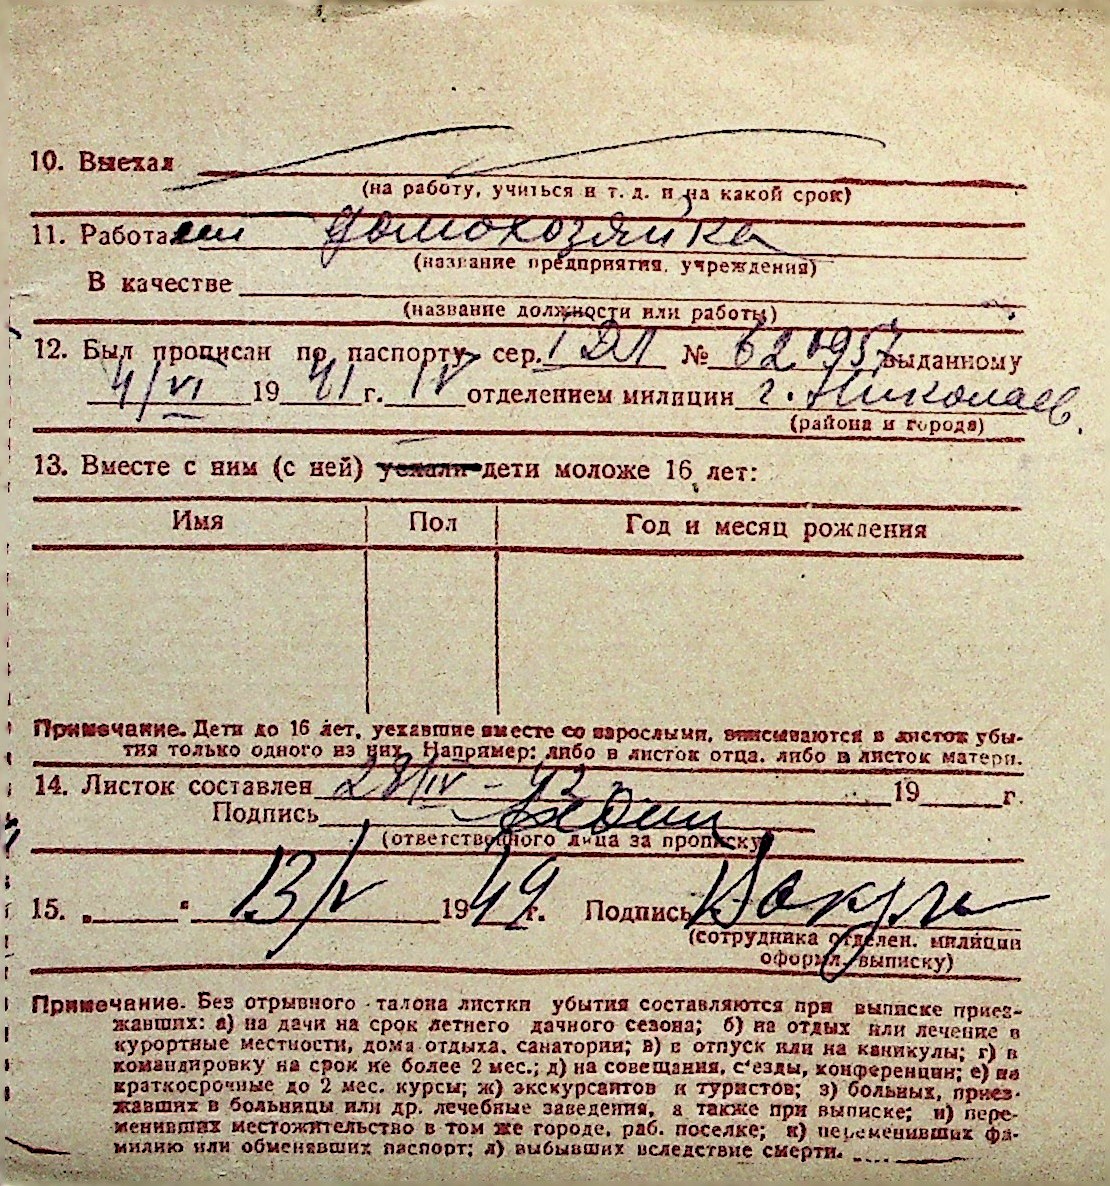 10. Выехал
(на работу, учиться и т. д. и на какой срок)
11. Работа домохозяйка
(название предприятия, учреждения)
В качестве
(название должности или работы)
12. Был прописан по паспорту сер. I ДЛ № 620957 выданному
4/VI 1941 г. IV отделением милиции г. Николаев.
(района и города)
13. Вместе с ним (с ней) уехали дети моложе 16 лет:
Имя Пол Год и месяц рождения
Примечание. Дети до 16 лет, уехавшие вместе со взрослыми, вписываются в листок убы-
тия только одного из них. Например: либо в листок отца, либо в листок матери.
14. Листок составлен 28/IV - 19 г.
Подпись
(ответственного лица за прописку
15. „ “ 13/V 1949 г. Подпись
(сотрудника отделен. милиции
оформ. выписку)
Примечание. Без отрывного талона листки убытия составляются при выписке приез-
жавших: а) на дачи на срок летнего дачного сезона; б) на отдых или лечение в
курортные местности, дома отдыха, санатории; в) в отпуск или на каникулы; г) в
командировку на срок не более 2 мес.; д) на совещания, с'езды, конференции; е) на
краткосрочные до 2 мес. курсы; ж) экскурсантов и туристов; з) больных, приез-
жавших в больницы или др. лечебные заведения, а также при выписке; и) пере-
менивших местожительство в том же городе, раб. поселке; к) переменивших фа-
милию или обменявших паспорт; л) выбывших вследствие смерти.